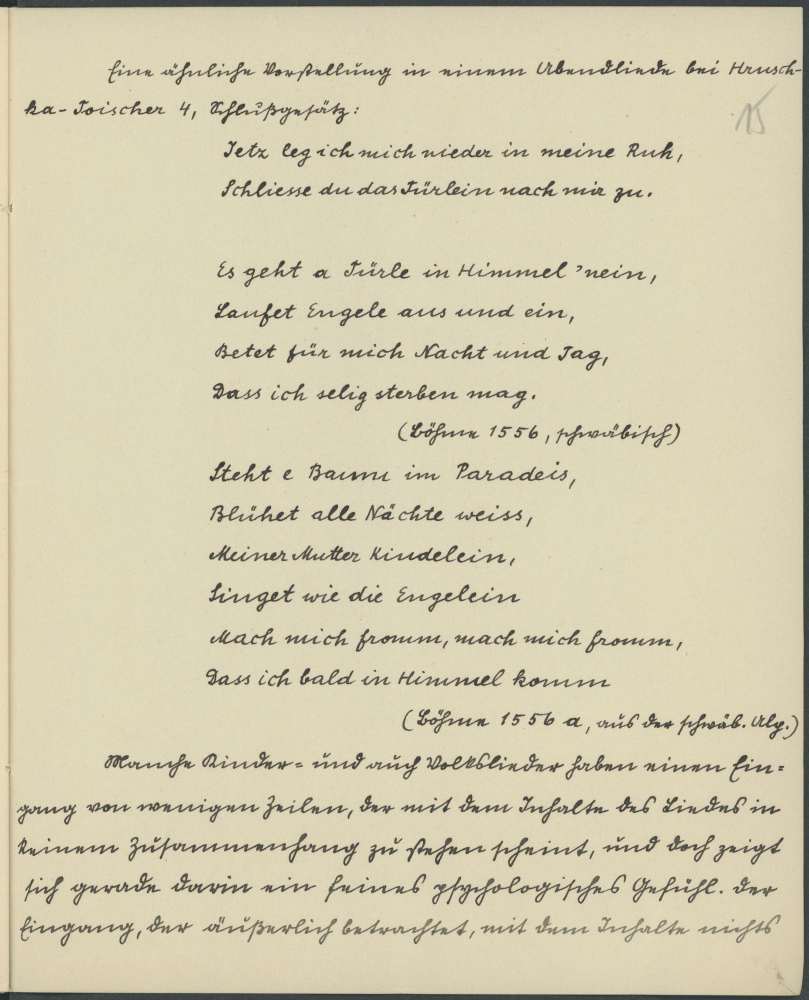 Eine ähnliche Vorstellung in einem Abendliede bei Hrusch-
ka-Toischer 4, Schlußgesätz:
15
Jetz leg ich mich nieder in meine Ruh,
Schliesse du das Türlein nach mir zu.
Es geht a Türle in Himmel 'nein,
Laufet Engele aus und ein,
Betet für mich Nacht und Tag,
Dass ich selig sterben mag.
(Böhme 1556, schwäbisch)
Steht e Baum im Paradeis,
Blühet alle Nächte weiss,
Meiner Mutter Kindelein,
Singet wie die Engelein
Mach mich fromm, mach mich fromm,
Dass ich bald in Himmel komm
(Böhme 1556 a, aus der schwäb. Alp.)
Manche Kinder- und auch Volkslieder haben einen Ein-
gang von wenigen Zeilen, der mit dem Inhalte des Liedes in
keinem Zusammenhang zu stehen scheint, und doch zeigt
sich gerade darin ein feines psychologisches Gefühl. Der
Eingang, der äußerlich betrachtet, mit dem Inhalte nichts